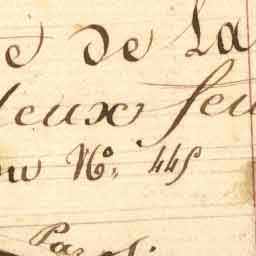 e de La
deux feu
ou No. 445
Pa